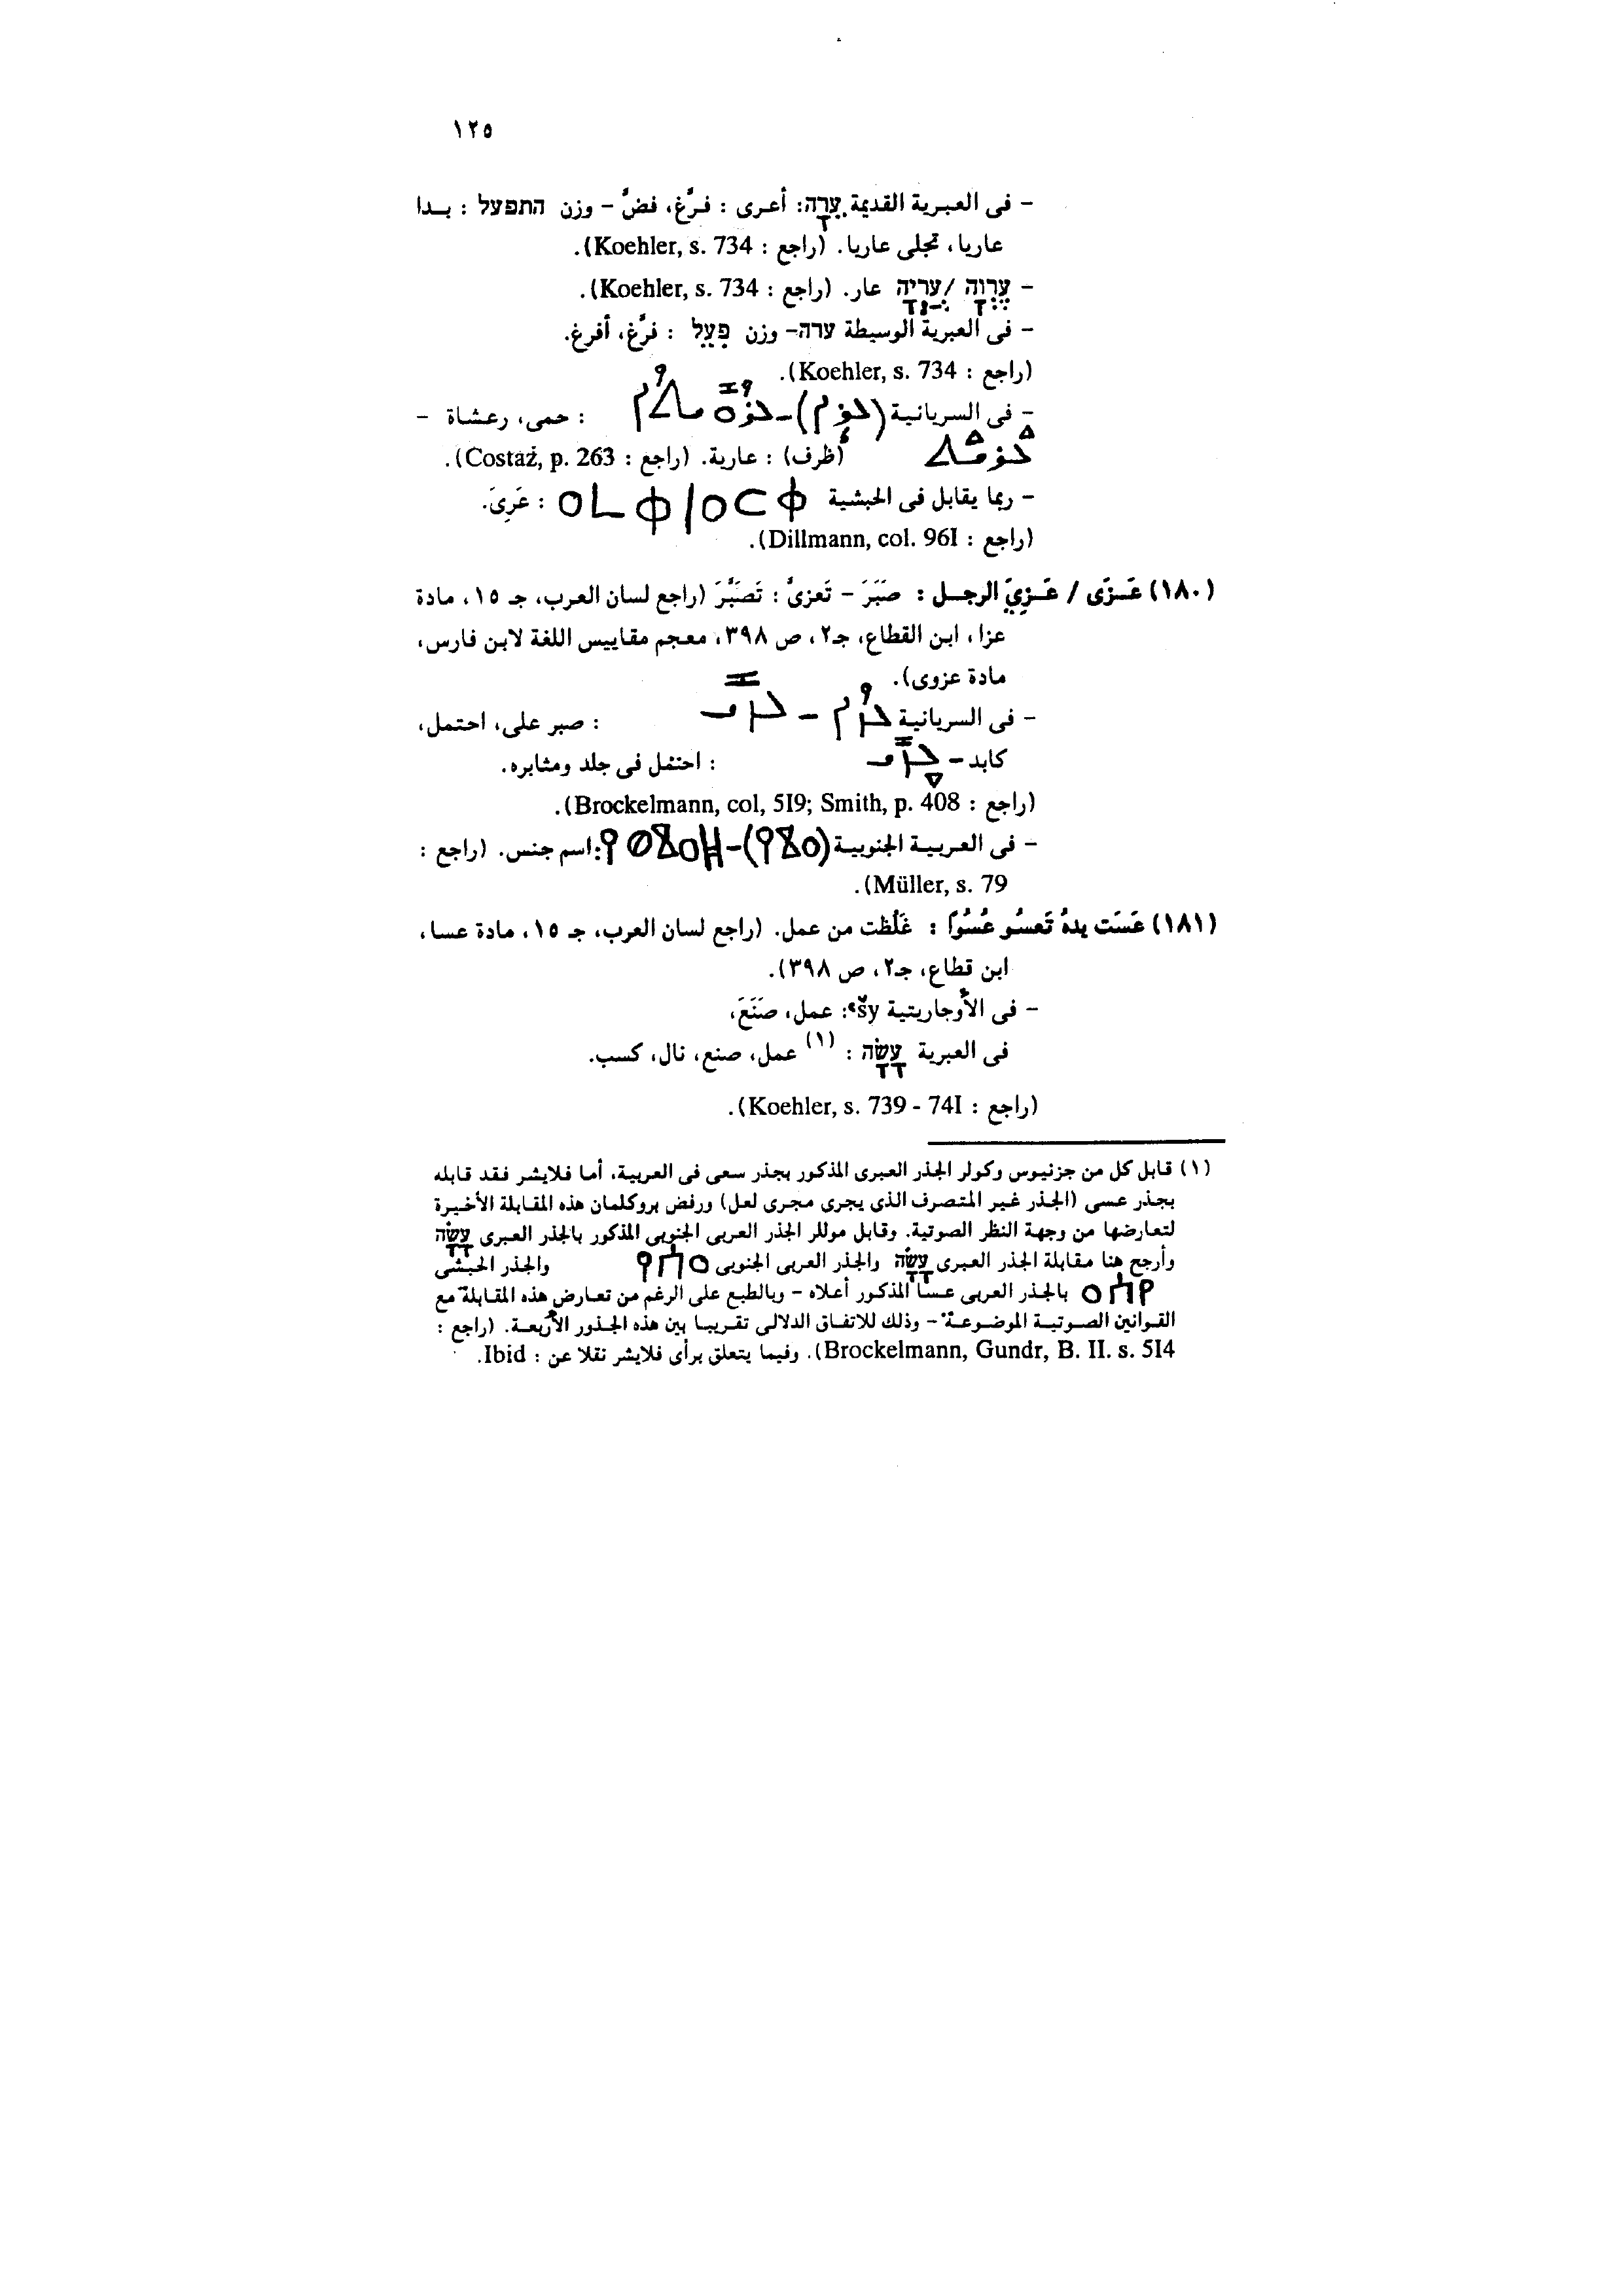 ١٢٥
- فى العبرية القديمة עָרָה: أعرى : فرَّغ، فضَّ - وزن התפעל : بـدا
عاريا، تجلى عاريا. (راجع : Koehler, s. 734).
- עֶרְוָה / עֶרְיָה عار. (راجع : Koehler, s. 734).
- فى العبرية الوسيطة ערה- وزن פִּעֵל : فرَّغ، أفرغ.
(راجع : Koehler, s. 734).
- فى السريانية : حمى، رعشاة -
(ظرف) : عارية. (راجع : Costaz, p. 263).
- ربما يقابل فى الحبشية : عَرِىَ.
(راجع : Dillmann, col. 96I).
(١٨٠) عَـزَى / عَـزِىَ الرجـل : صَبَرَ - تَعزىَّ : تَصَبَّرَ (راجع لسان العرب، جـ ١٥، مادة
عزا، ابن القطاع، جـ٢، ص ٣٩٨، معجم مقاييس اللغة لابن فارس،
مادة عزوى).
- فى السريانية : صبر على، احتمل،
كابد - : احتمل فى جلد ومثابره.
(راجع : Brockelmann, col, 5I9; Smith, p. 408).
- فى العربيـة الجنوبيـة : اسم جنس. (راجع :
Müller, s. 79).
(١٨١) عَسَت يدهُ تَعسُو عُسُوّاً : غَلُظت من عمل. (راجع لسان العرب، جـ ١٥، مادة عسا،
ابن قطاع، جـ٢، ص ٣٩٨).
- فى الأوجاريتية ʿšy: عمل، صَنَعَ،
فى العبرية עָשָׂה : (١) عمل، صنع، نال، كسب.
(راجع : Koehler, s. 739 - 74I).
(١) قابل كل من جزنيوس وكولر الجذر العبرى المذكور بجذر سعى فى العربية، أما فلايشر فقد قابله
بجذر عسى (الجذر غير المتصرف الذى يجرى مجرى لعل) ورفض بروكلمان هذه المقابلة الأخيرة
لتعارضها من وجهة النظر الصوتية. وقابل موللر الجذر العربى الجنوبى المذكور بالجذر العبرى עָשָׂה
وأرجح هنا مقابلة الجذر العبرى עָשָׂה والجذر العربى الجنوبى والجذر الحبشى
بالجذر العربى عسـا المذكور أعلاه - وبالطبع على الرغم من تعارض هذه المقابلة مع
القوانين الصوتية الموضوعة - وذلك للاتفاق الدلالى تقريبا بين هذه الجذور الأربعة. (راجع :
Brockelmann, Gundr, B. II. s. 5I4). وفيما يتعلق برأى فلايشر نقلا عن : Ibid.